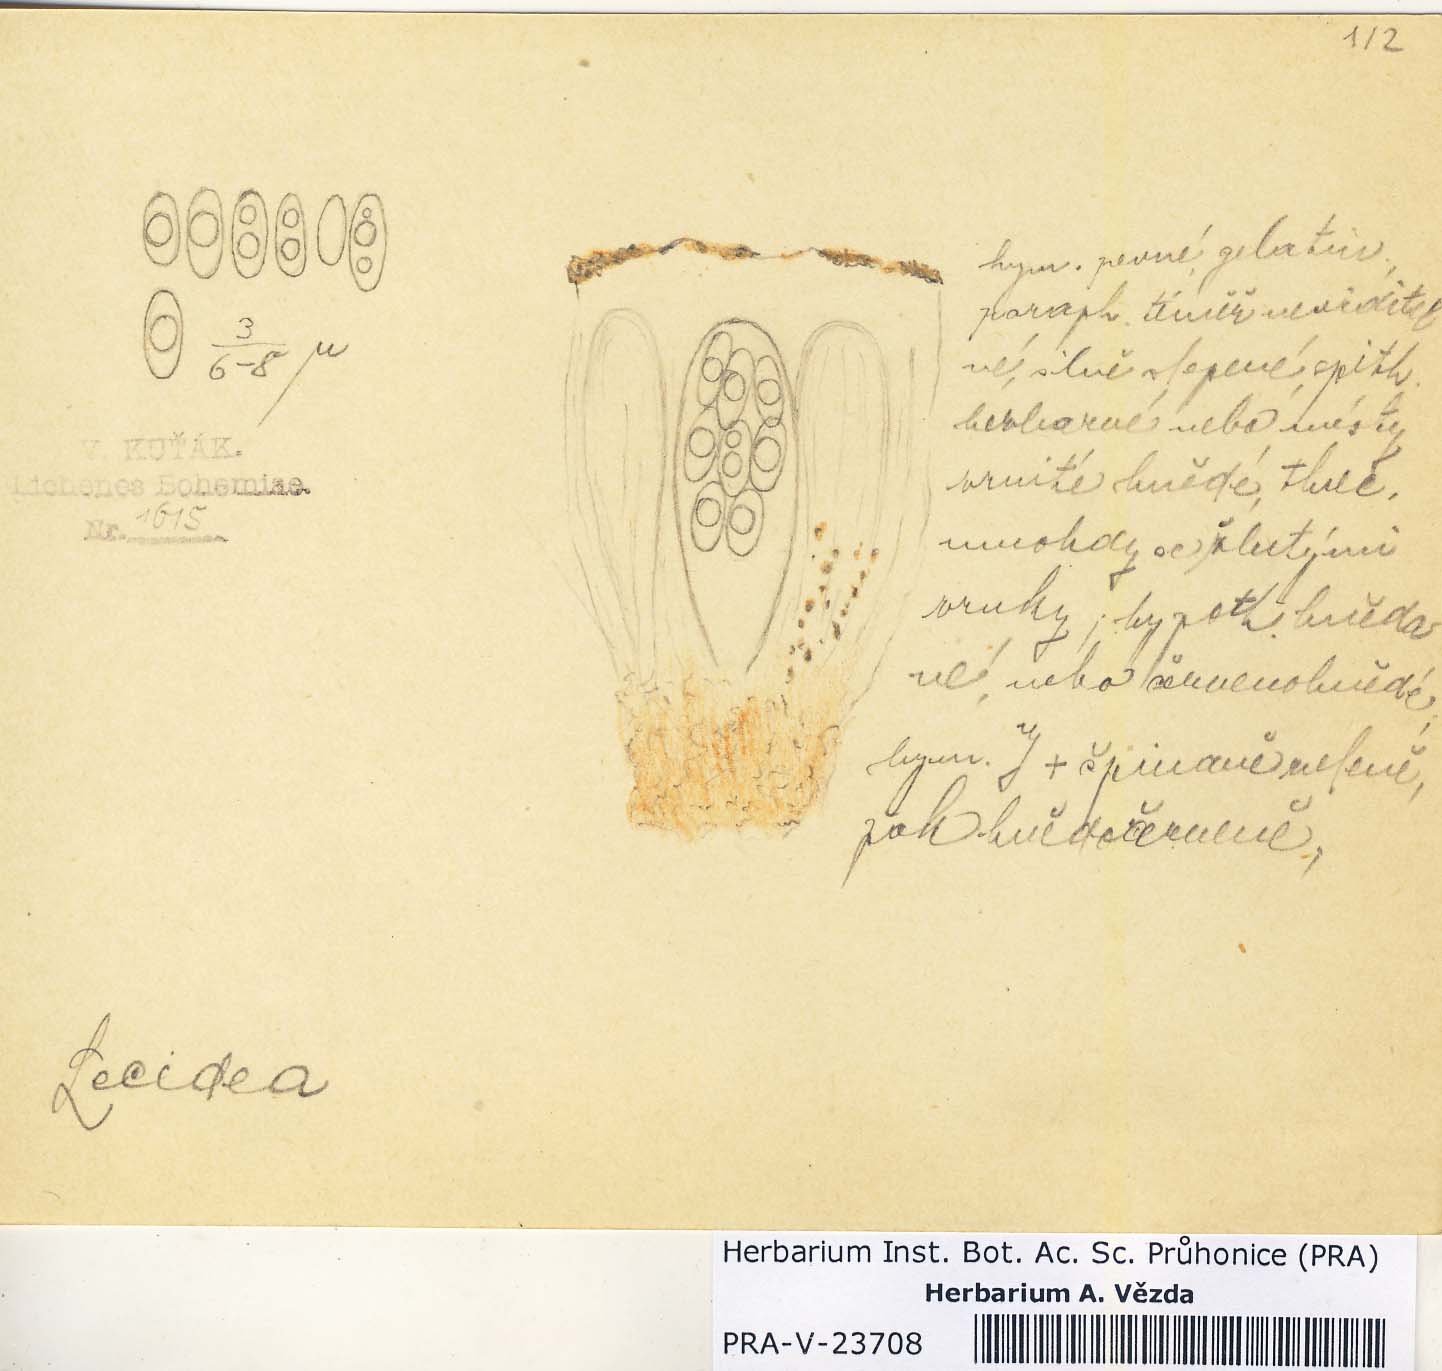 1/2
3
6-8 μ
V. KUŤÁK.
Lichenes Bohemiae.
Nr. 1615
hym. pevné, gelatin.,
paraph. téměř neviditel
né, silně slepené, epith.
bezbarvé nebo místy
zrnité hnědé, tlust.
mnohdy se žlutými
zrnky, hypoth. hnědav
né, nebo červenohnědé,
hym. J + špinavě zeleně,
pak hnědočerveně,
Lecidea
Herbarium Inst. Bot. Ac. Sc. Průhonice (PRA)
Herbarium A. Vězda
PRA-V-23708